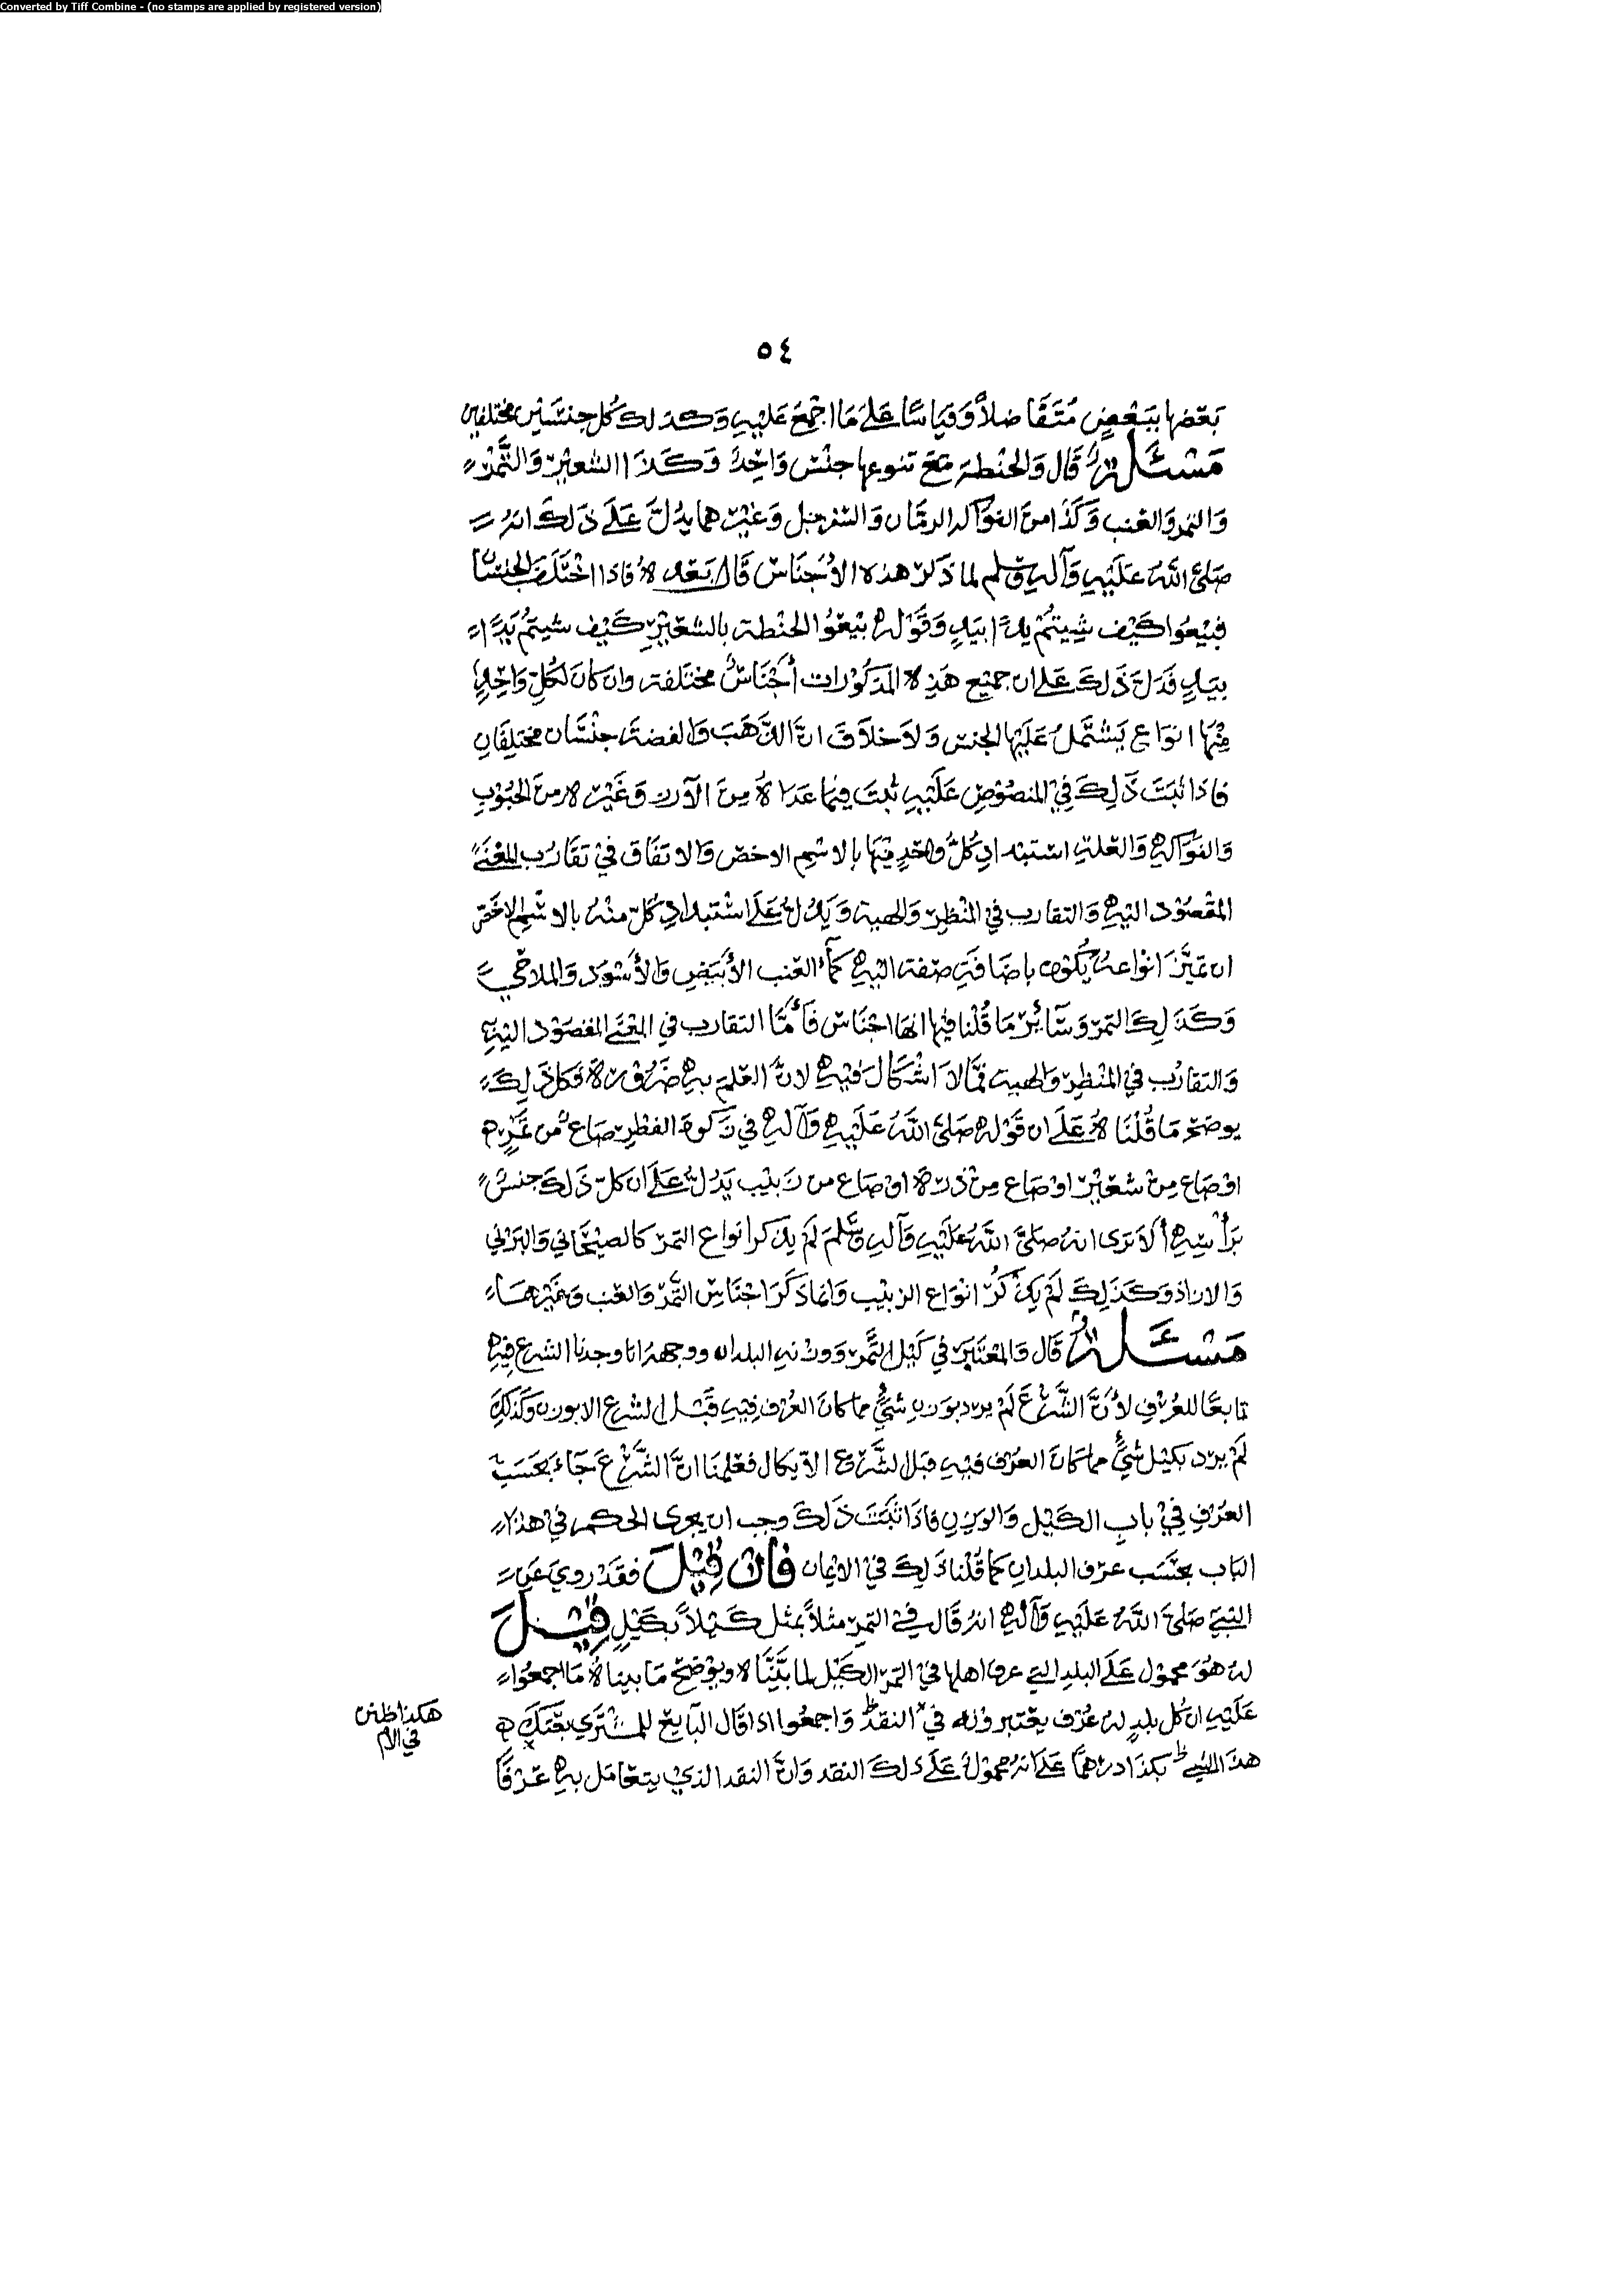 Converted by Tiff Combine - (no stamps are applied by registered version)
٥٤
بعضها ببعض متفاضلاً وقياسًا على ما اجمع عليه وكذلك كل جنسين مختلفين
مسئلة قال والحنطة مع تنوعها جنس واحد وكذا الشعير والتمر
والتمر والعنب وكذا من الفواكه الرمان والسفرجل وغيرهما يدل على ذلك انه
صلى الله عليه وآله وسلم لما ذكر هذه الأجناس قال بعده فاذا اختلف الجنسان
فبيعوا كيف شيتم يدًا بيد وقوله بيعوا الحنطة بالشعير كيف شيتم يدًا
بيد فدل ذلك على ان جميع هذه المذكورات أجناس مختلفة وان كان لكل واحد
منها انواع يشتمل عليها الجنس ولا خلاف ان الذهب والفضة جنسان مختلفان
فاذا ثبت ذلك في المنصوص عليه ثبت فيما عداه من الآرز وغيره من الحبوب
والفواكه والعلة استبداد كل واحد منها بالاسم الاخص والاتفاق في تقارب المعنى
المقصود اليه والتقارب في المنظر والهيية ويدل على استبداد كل منه بالاسم الاخص
ان تميز انواعه يكون باضافة صفة اليه كما العنب الأبيض والأسود والملاحي
وكذلك التمر وسائر ما قلنا فيها انها اجناس فأما التقارب في المعنى المقصود اليه
والتقارب في المنظر والهيية فمما لا اشكال فيه لان العلم به ضرورة وكل ذلك
يوضح ما قلناه على ان قوله صلى الله عليه وآله في زكوة الفطر صاع من
او صاع من شعير او صاع من ذرة او صاع من زبيب يدل على ان كل ذلك جنس
برأسه ألا ترى انه صلى الله عليه وآله وسلم لم يذكر انواع التمر كالصيحاني والبرني
والازاذ وكذلك لم يذكر انواع الزبيب وانما ذكر اجناس التمر والعنب وغيرهما
مسئلة قال والمعتبر في كيل التمر ووزنه البلدان ووجهه انا وجدنا الشرع فيه
تابعًا للعرف لأن الشرع لم يرد بوزن شيء مما كان العرف فيه قبل الشرع الا بوزن وكذلك
لم يرد بكيل شيء مما كان العرف فيه قبل الشرع الا يكال فعلمنا ان الشرع جاء بحسب
العرف في باب الكيل والوزن فاذا ثبت ذلك وجب ان يجرى الحكم في هذا
الباب بحسب عرف البلدان كما قلنا ذلك في الايمان فان قيل فقد روي عن
النبي صلى الله عليه وآله انه قال في التمر مثلاً بمثل كيلاً بكيل قيل
له هو محمول على البلد التي عرف اهلها في التمر الكيل لما بيناه ويوضح ما بيناه ما اجمعوا
عليه ان كل بلد له عرف يعتبر وزنه في النقد واجمعوا اذا قال البايع للمشتري بعتك
هذا الشيء بكذا درهمًا على انه محمول على ذلك النقد وان النقد الذي يتعامل به عرفًا
هكذا ظنن
في الأم